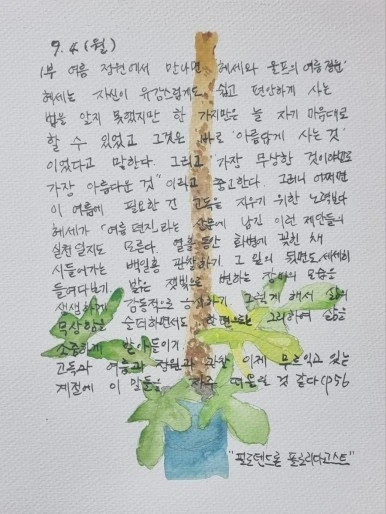 9. 4 (월)
1부 여름 정원에서 만나면 "헤세와 울프의 여름 정원"
헤세는 자신이 유감스럽게도 쉽고 편안하게 사는
법을 알지 못했지만 한 가지만은 늘 자기 마음대로
할 수 있었고 그것은 바로 '아름답게 사는 것'
이었다고 말한다. 그리고 '가장 무상한 것이야말로
가장 아름다운 것" 이라고 충고한다. 그러니 어쩌면
이 여름에 필요한 건 고독을 지우기 위한 노력보다
헤세가 「여름 편지」라는 산문에 남긴 이런 제안들의
실천일지도 모른다. 열흘 동안 화병에 꽂힌 채
시들어가는 백일홍 관찰하기 그 잎의 뒷면도 세세히
들여다보기 밝은 잿빛으로 변하는 장미의 모습을
생생하게 감동적으로 응시하기 그렇게 해서 삶의
무상함을 슬퍼하면서도 한편으로 그리하여 삶을
소중하게 받아들이기
고독과 여름과 정원과 관찰 이제 무르익고 있는
계절에 이 말들을 자주 떠올릴 것 같다 (p56
"필로덴드론 플로리다고스트"